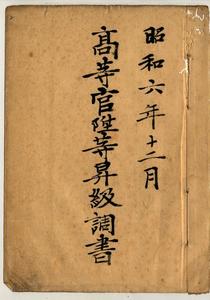 昭和六年十二月
高等官陞等昇級調書